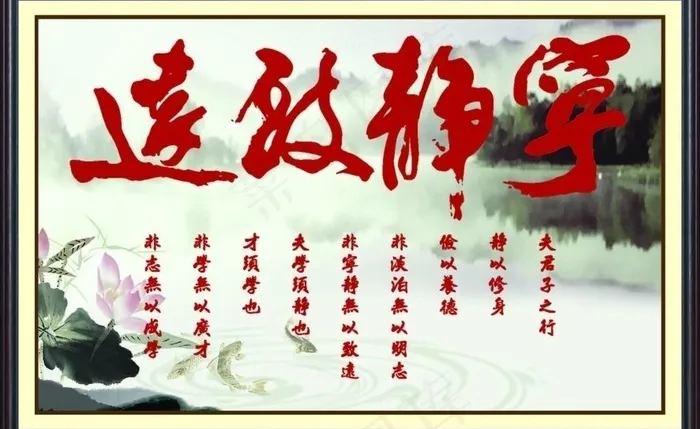 寧静致遠
夫君子之行
静以修身
儉以養德
非淡泊無以明志
非寧静無以致遠
夫學須静也
才須學也
非學無以廣才
非志無以成學